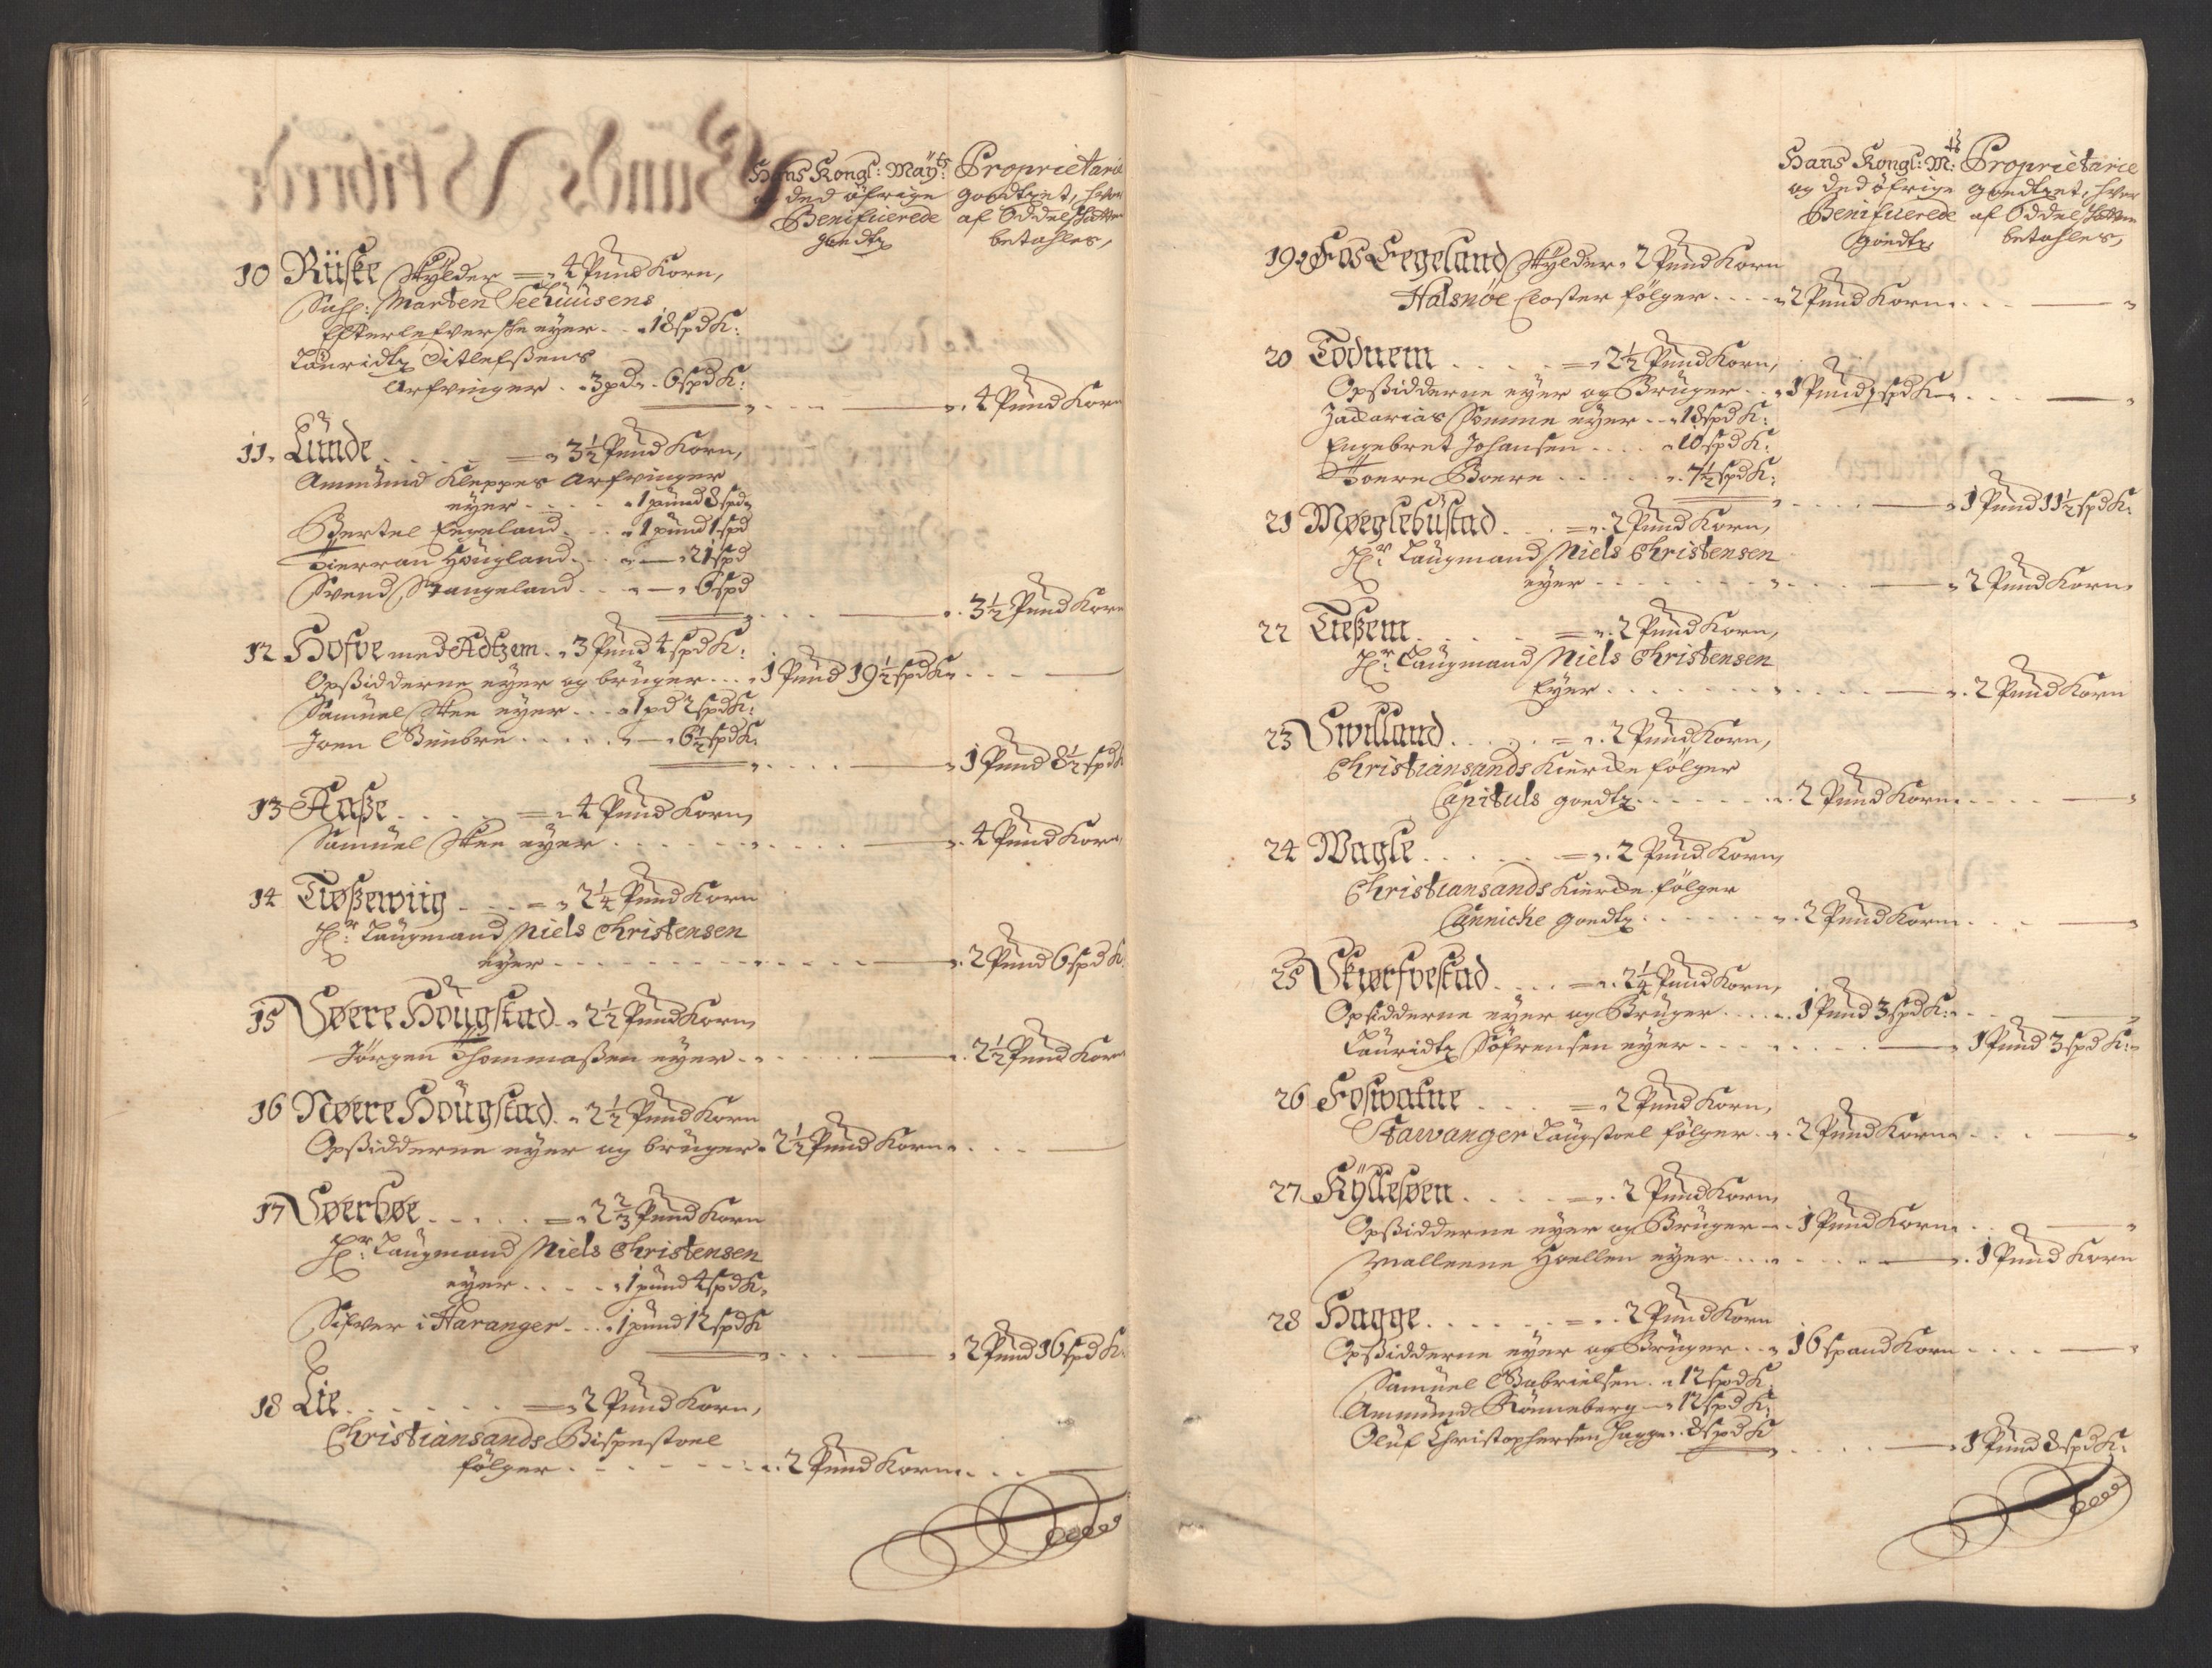 Hans Kongl: Maÿts: Proprietarie
og ded öfrige goedtzet, hvor
Benificerede af Oddel Skatten
goedtz betahles,
10 Rüske Skÿlder = 4 Pund Korn,
Sahl: Marten Seehuusens
Efterlefverske eÿer . . 18 spd K:
Lauridtz Ditlefsens
Arfvinger . . 3 pd . 6 spd K:
4 Pund Korn
11. Lunde . . . . = 3½ Pund Korn,
Ammund Kleppes Arfvinger
eÿer . . . . 1 pund 8 spd
Bertel Eegeland . . . 1 pund 1 spd
Tierran Höugland . . . — 21 spd
Svend Stangeland . . . — 6 spd
3½ Pund Korn
12 Hofve med Adtzem . 3 Pund 4 spd K:
Opsidderne eÿer og bruger . . . 1 Pund 19½ spd K . . . —
Samuel Steen eÿer . . . 1 pd 2 spd K:
Joen Bimbre . . . . . — 6½ spd K.
1 Pund 8½ spd K
13 Aaße . . . . = 4 Pund Korn,
Samuel Steen eÿer . . . . . . — 4 Pund Korn,
14 Tiøßewiig . . . = 2¼ Pund Korn
Hr: Laugmand Niels Christensen
eÿer . . . . . . . — 2 Pund 6 spd K.
15 Søere Höugstad . 2½ Pund Korn,
Jörgen Thommaßen eÿer . . . . — 2½ Pund Korn
16 Nøere Höugstad . 2½ Pund Korn
Opsidderne eÿer og bruger . 2½ Pund Korn . . . —
17 Søerbøe . . . . . = 2⅔ Pund Korn
Hr: Laugmand Niels Christensen
eÿer . . . . 1 pund 4 spd K.
Sifver i Haranger . . . 1 pund 12 spd K
2 Pund 16 spd K.
18 Lie . . . . . . = 2 Pund Korn,
Christiansands Bispestoel
fölger . . . . . . . 2 Pund Korn . . . —
Hans Kongl: Mts: Proprietarie
og ded öfrige goedtzet, hvor
Benificerede af Oddel Skatten
goedtz betahles,
19 Fos Eegeland Skÿlder . 2 Pund Korn
Halsnöe Closter fölger . . . . 2 Pund Korn . . . —
20 Todnem . . . . . = 2½ Pund Korn,
Opsidderne eÿer og Bruger . . 1 Pund ½ spd K . . . —
Zacarias Somme eÿer . . 18 spd K:
Engebret Johansen . . . . 10 spd K:
Toere Boere . . . . . 7½ spd K:
1 Pund 11½ spd K:
21 Møeglebustad . . . = 2 Pund Korn,
Hr: Laugmand Niels Christensen
eÿer . . . . . . . — 2 Pund Korn.
22 Tießem . . . . . = 2 Pund Korn,
Hr: Laugmand Niels Christensen
Eÿer . . . . . . . — 2 Pund Korn
23 Svilland . . . . . = 2 Pund Korn,
Christiansands Kiercke fölger
Capituls goedtz . . . . . . 2 Pund Korn . . . —
24 Wagle . . . . . . = 2 Pund Korn,
Christiansands Kiercke fölger
Canniche goedtz . . . . . . 2 Pund Korn . . . —
25 Skiørfvestad . . . . = 2¼ Pund Korn,
Opsidderne eÿer og Bruger . . . . 1 Pund 3 spd K: . . —
Lauridtz Söfrensen eÿer . . . . — 1 Pund 3 spd K:
26 Foswatne . . . . = 2 Pund Korn,
Stawanger Laugstoel fölger . . 2 Pund Korn . . . —
27 Kÿllesøen . . . . = 2 Pund Korn,
Opsidderne eÿer og Bruger . . 1 Pund Korn . . —
Malleene Hoellen eÿer . . . . — 1 Pund Korn
28 Hagge . . . . . . = 2 Pund Korn
Opsidderne eÿer og Bruger . . 16 spand Korn . . . . —
Samuel Gabrielsen . 12 spd K.
Ammund Rönneberg — 12 spd K:
Oluf Christophersen Hagge . 8 spd K
1 Pund 8 spd K: